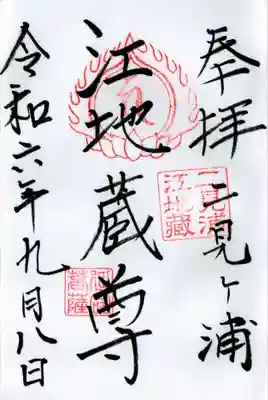 奉拝
二見ヶ浦
二見浦
江地蔵
江地蔵尊
令和六年九月八日